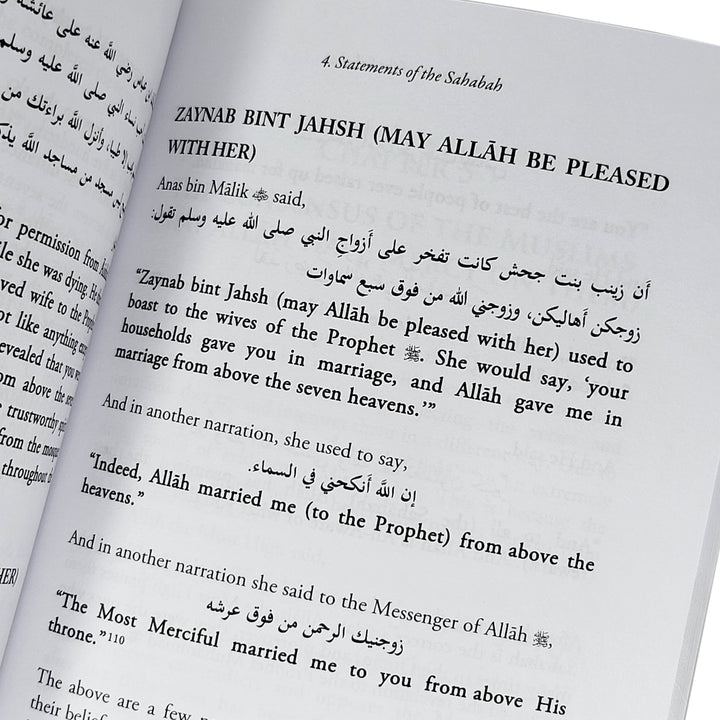 رضي الله عنه على عائشة
نساء النبي صلى الله عليه وسلم
إلا طيبا، وأنزل الله براءتك من
مسجد من مساجد الله يذكر
or permission from
le she was dying. He
ved wife to the Prophet
ot like anything
evealed that you were
om above the
trustworthy
from the
throughout
HER)
4. Statements of the Sahabah
ZAYNAB BINT JAHSH (MAY ALLĀH BE PLEASED
WITH HER)
Anas bin Mālik ﷺ said,
أن زينب بنت جحش كانت تفخر على أَزواجِ النبي صلى الله عليه وسلم تقول:
زوجكن أهاليكن، وزوجني الله من فوق سبع سماوات
“Zaynab bint Jahsh (may Allāh be pleased with her) used to
boast to the wives of the Prophet ﷺ. She would say, ‘your
households gave you in marriage, and Allāh gave me in
marriage from above the seven heavens.’”
And in another narration, she used to say,
إن اللَّه أنكحني في السماء.
“Indeed, Allāh married me (to the Prophet) from above the
heavens.”
And in another narration she said to the Messenger of Allāh ﷺ,
زوجنيك الرحمن من فوق عرشه
“The Most Merciful married me to you from above His
throne.”110
The above are a few
their